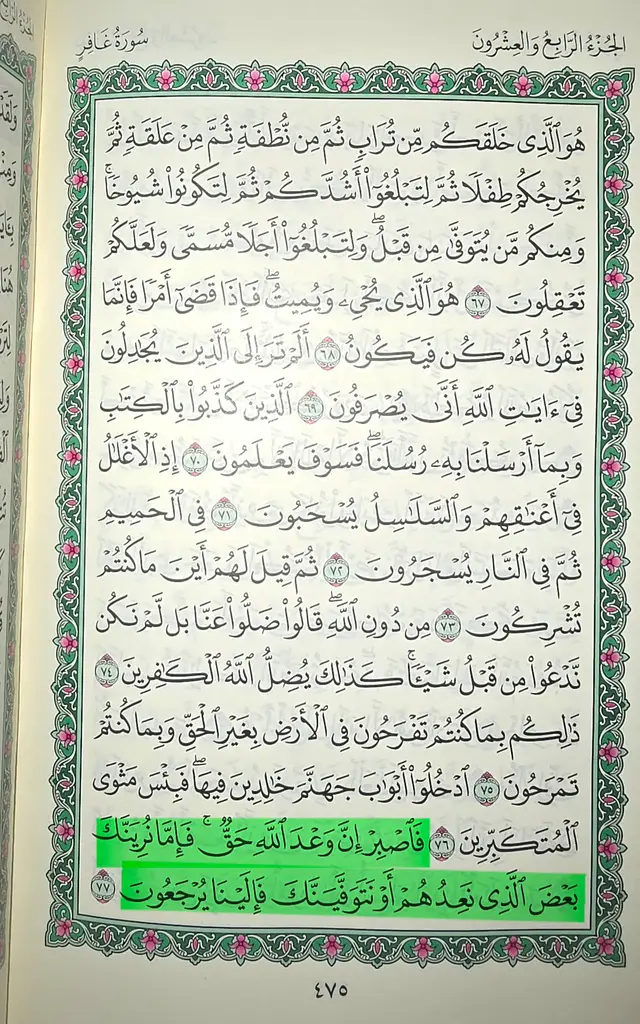 الجُزْءُ الرَّابِعُ وَالعِشْرُونَ
سُورَةُ غَافِرٍ
هُوَ ٱلَّذِى خَلَقَكُم مِّن تُرَابٍ ثُمَّ مِن نُّطْفَةٍ ثُمَّ مِنْ عَلَقَةٍ ثُمَّ
يُخْرِجُكُمْ طِفْلًا ثُمَّ لِتَبْلُغُوٓا۟ أَشُدَّكُمْ ثُمَّ لِتَكُونُوا۟ شُيُوخًا ۚ
وَمِنكُم مَّن يُتَوَفَّىٰ مِن قَبْلُ ۖ وَلِتَبْلُغُوٓا۟ أَجَلًا مُّسَمًّى وَلَعَلَّكُمْ
تَعْقِلُونَ ٦٧ هُوَ ٱلَّذِى يُحْىِۦ وَيُمِيتُ ۖ فَإِذَا قَضَىٰٓ أَمْرًا فَإِنَّمَا
يَقُولُ لَهُۥ كُن فَيَكُونُ ٦٨ أَلَمْ تَرَ إِلَى ٱلَّذِينَ يُجَـٰدِلُونَ
فِىٓ ءَايَـٰتِ ٱللَّهِ أَنَّىٰ يُصْرَفُونَ ٦٩ ٱلَّذِينَ كَذَّبُوا۟ بِٱلْكِتَـٰبِ
وَبِمَآ أَرْسَلْنَا بِهِۦ رُسُلَنَا ۖ فَسَوْفَ يَعْلَمُونَ ٧٠ إِذِ ٱلْأَغْلَـٰلُ
فِىٓ أَعْنَـٰقِهِمْ وَٱلسَّلَـٰسِلُ يُسْحَبُونَ ٧١ فِى ٱلْحَمِيمِ
ثُمَّ فِى ٱلنَّارِ يُسْجَرُونَ ٧٢ ثُمَّ قِيلَ لَهُمْ أَيْنَ مَا كُنتُمْ
تُشْرِكُونَ ٧٣ مِن دُونِ ٱللَّهِ ۖ قَالُوا۟ ضَلُّوا۟ عَنَّا بَل لَّمْ نَكُن
نَّدْعُوا۟ مِن قَبْلُ شَيْـًٔا ۚ كَذَٰلِكَ يُضِلُّ ٱللَّهُ ٱلْكَـٰفِرِينَ ٧٤
ذَٰلِكُم بِمَا كُنتُمْ تَفْرَحُونَ فِى ٱلْأَرْضِ بِغَيْرِ ٱلْحَقِّ وَبِمَا كُنتُمْ
تَمْرَحُونَ ٧٥ ٱدْخُلُوٓا۟ أَبْوَٰبَ جَهَنَّمَ خَـٰلِدِينَ فِيهَا ۖ فَبِئْسَ مَثْوَى
ٱلْمُتَكَبِّرِينَ ٧٦ فَٱصْبِرْ إِنَّ وَعْدَ ٱللَّهِ حَقٌّ ۚ فَإِمَّا نُرِيَنَّكَ
بَعْضَ ٱلَّذِى نَعِدُهُمْ أَوْ نَتَوَفَّيَنَّكَ فَإِلَيْنَا يُرْجَعُونَ ٧٧
٤٧٥